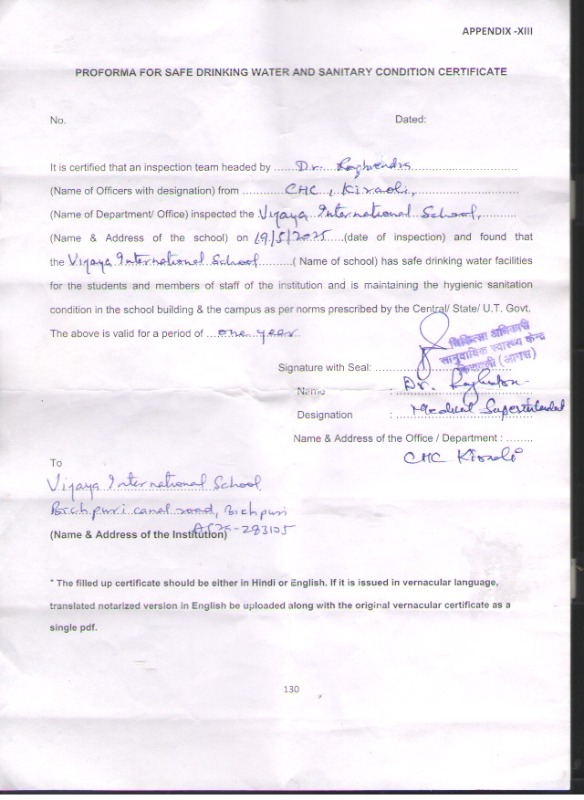 APPENDIX -XIII
PROFORMA FOR SAFE DRINKING WATER AND SANITARY CONDITION CERTIFICATE
No. Dated:
It is certified that an inspection team headed by ........Dr. Raghvendra...............
(Name of Officers with designation) from ............CHC, Kiraoli,...............
(Name of Department/ Office) inspected the Vijaya International School,..........
(Name & Address of the school) on 19/5/2025.....(date of inspection) and found that
the Vijaya International School..........( Name of school) has safe drinking water facilities
for the students and members of staff of the institution and is maintaining the hygienic sanitation
condition in the school building & the campus as per norms prescribed by the Central/ State/ U.T. Govt.
The above is valid for a period of ....one year
चिकित्सा अधिकारी
सामुदायिक स्वास्थ्य केन्द्र
किरावली (आगरा)
Signature with Seal: ..............
Name : Dr.
Designation : Medical Superintendent
Name & Address of the Office / Department : ........
CHC Kiraoli
To
Vijaya International School
Bichpuri canal road, Bichpuri
283105
(Name & Address of the Institution)
* The filled up certificate should be either in Hindi or English. If it is issued in vernacular language,
translated notarized version in English be uploaded along with the original vernacular certificate as a
single pdf.
130